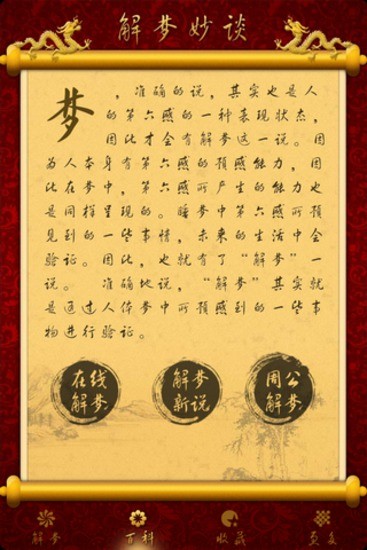 解梦妙谈
梦，准确的说，其实也是人
的第六感的一种表现状态，
因此才会有解梦这一说。因
为人本身有第六感的预感能力，因
此在梦中，第六感所产生的能力也
是同样呈现的。睡梦中第六感所预
见到的一些事情，未来的生活中会
验证。因此，也就有了“解梦”一
说。 准确地说，“解梦”其实就
是通过人体梦中所预感到的一些事
物进行验证。
在线 解梦 周公
解梦 新说 解梦
解梦 百科 收藏 更多